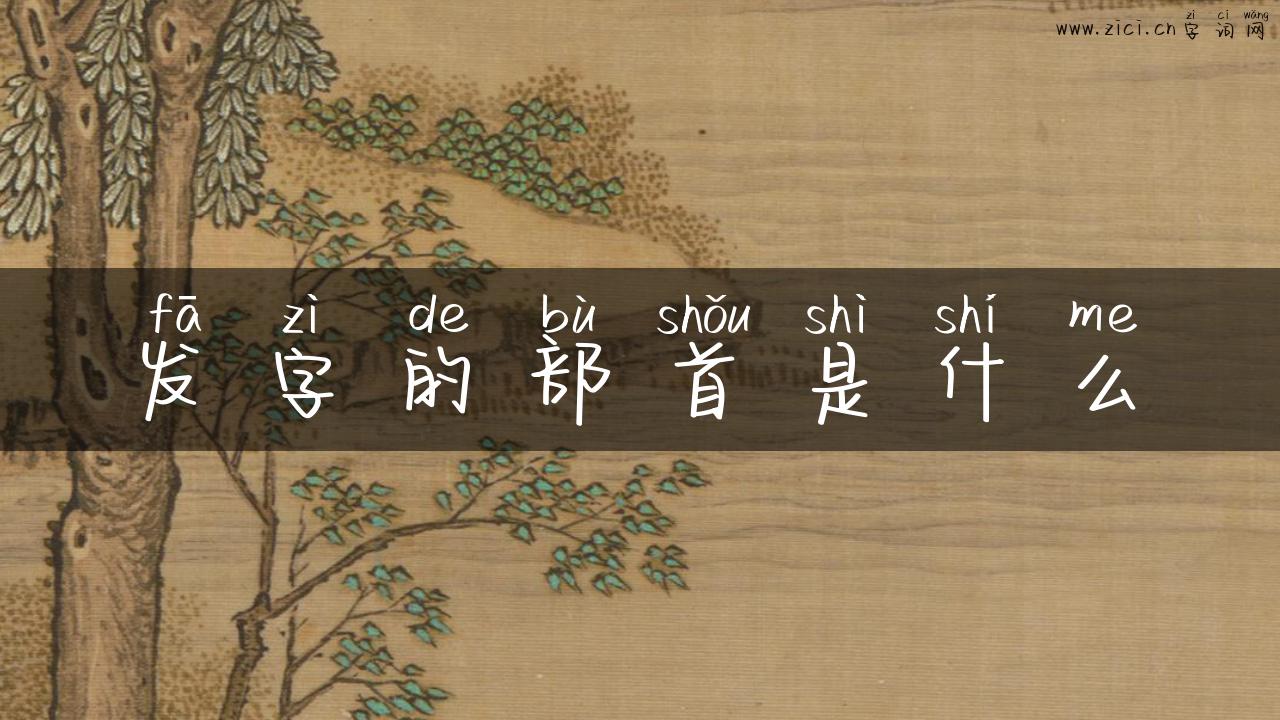 zì cí wǎng
www.zici.cn 字词网
fā zì de bù shǒu shì shí me
发字的部首是什么